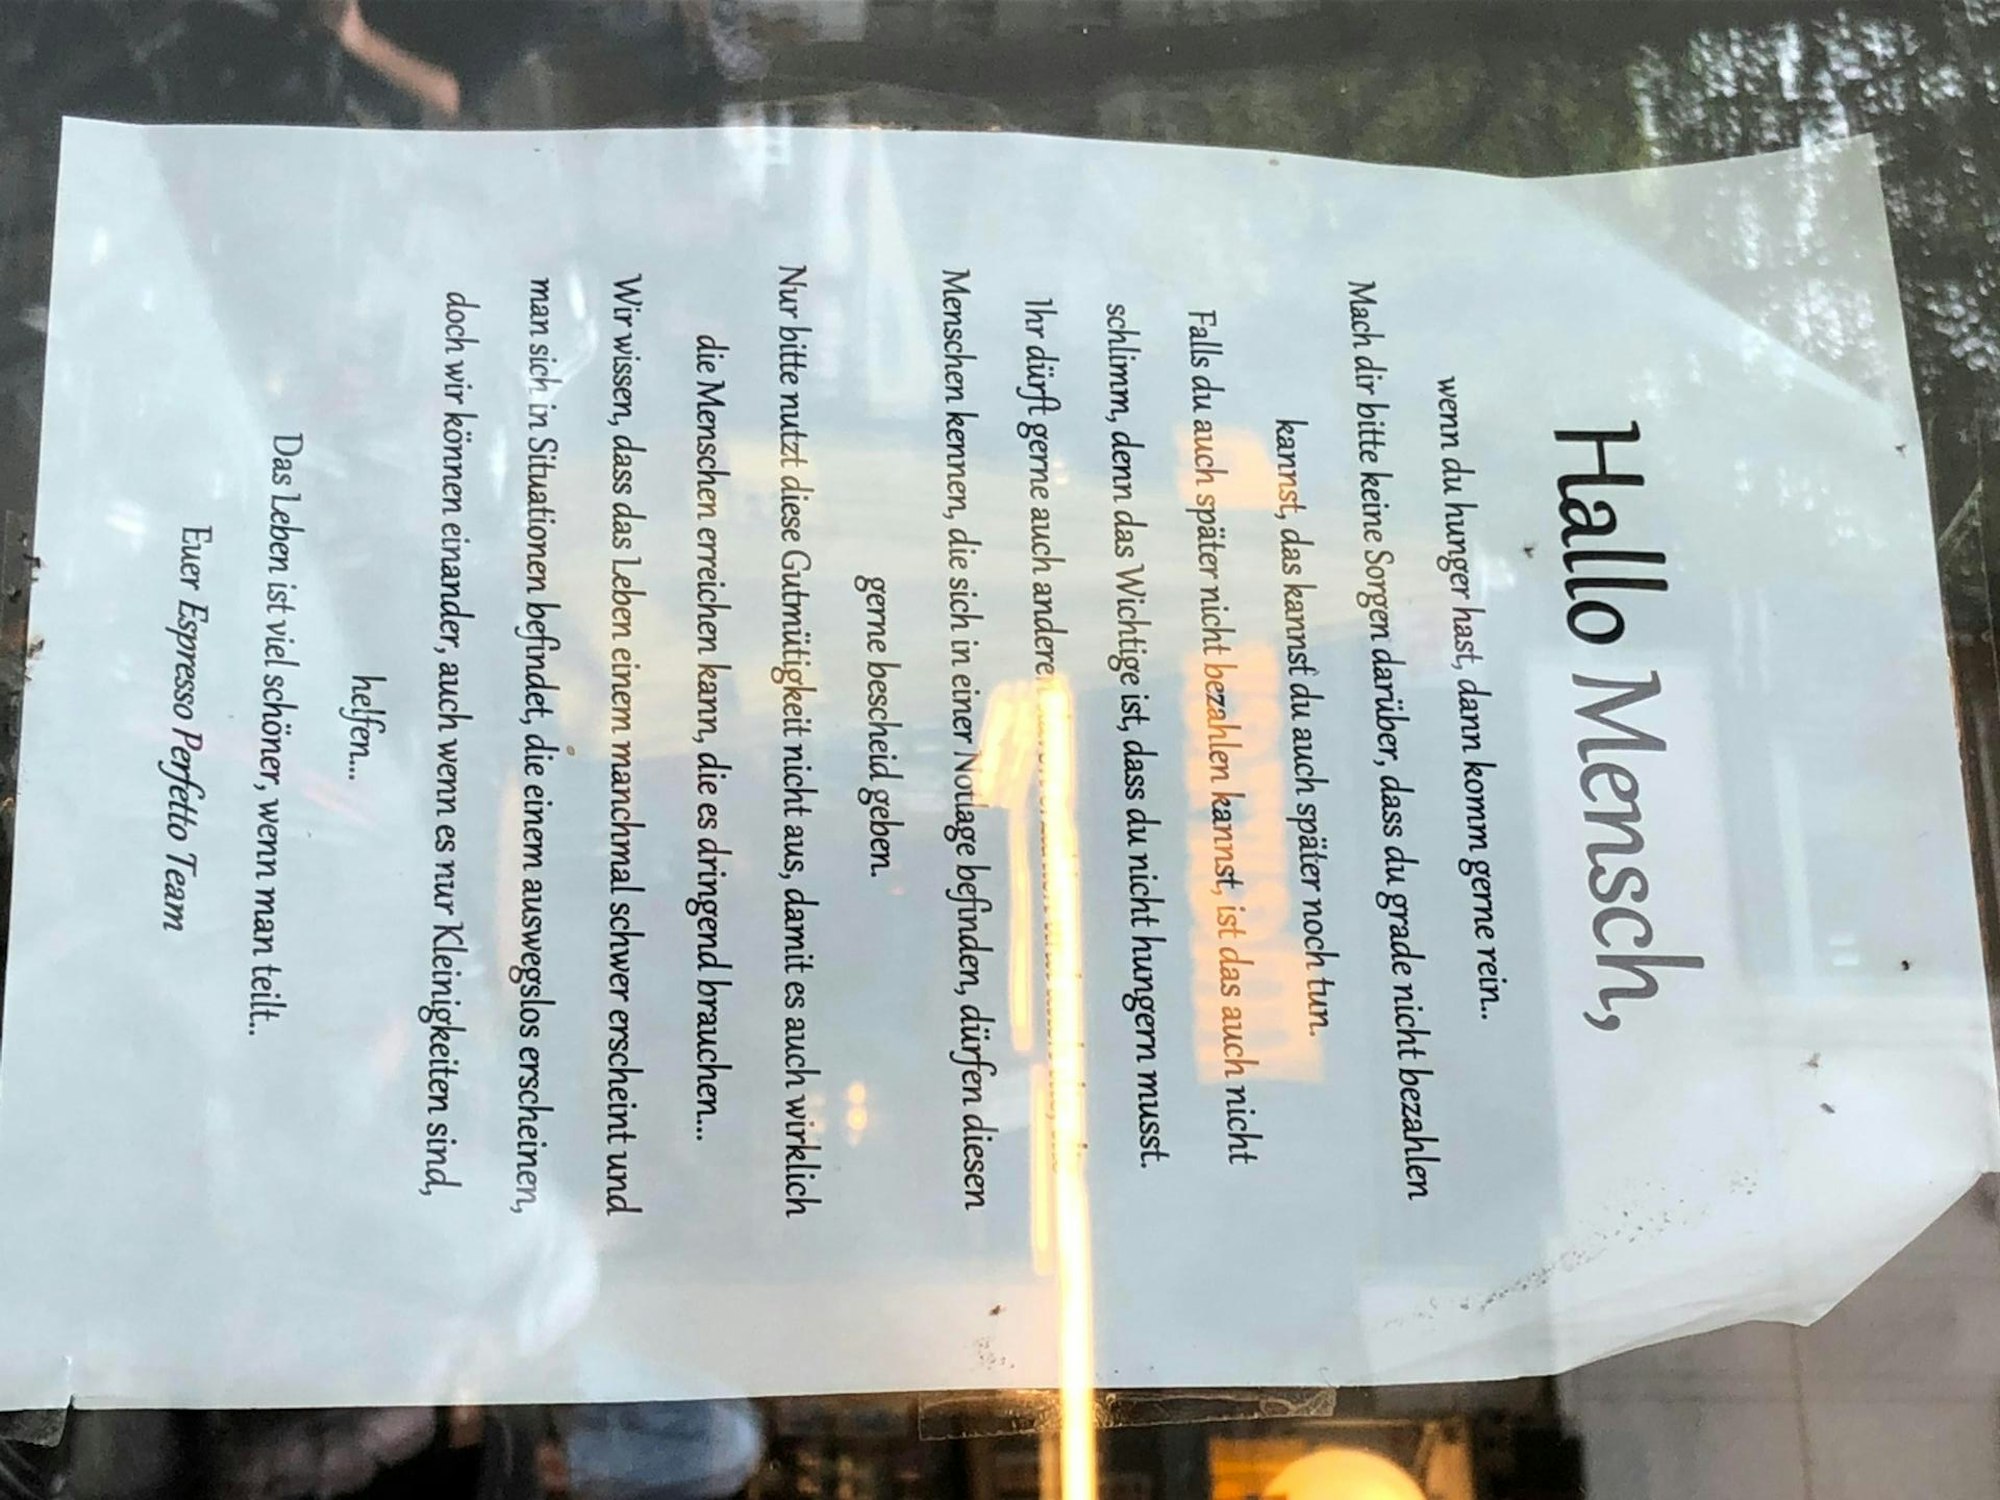 Hallo Mensch,
wenn du hunger hast, dann komm gerne rein..
Mach dir bitte keine Sorgen darüber, dass du grade nicht bezahlen
kannst, das kannst du auch später noch tun.
Falls du auch später nicht bezahlen kannst, ist das auch nicht
schlimm, denn das Wichtige ist, dass du nicht hungern musst.
Ihr dürft gerne auch anderen
Menschen kennen, die sich in einer Notlage befinden, dürfen diesen
gerne bescheid geben.
Nur bitte nutzt diese Gutmütigkeit nicht aus, damit es auch wirklich
die Menschen erreichen kann, die es dringend brauchen...
Wir wissen, dass das Leben einem manchmal schwer erscheint und
man sich in Situationen befindet, die einem auswegslos erscheinen,
doch wir können einander, auch wenn es nur Kleinigkeiten sind,
helfen...
Das Leben ist viel schöner, wenn man teilt..
Euer Espresso Perfetto Team